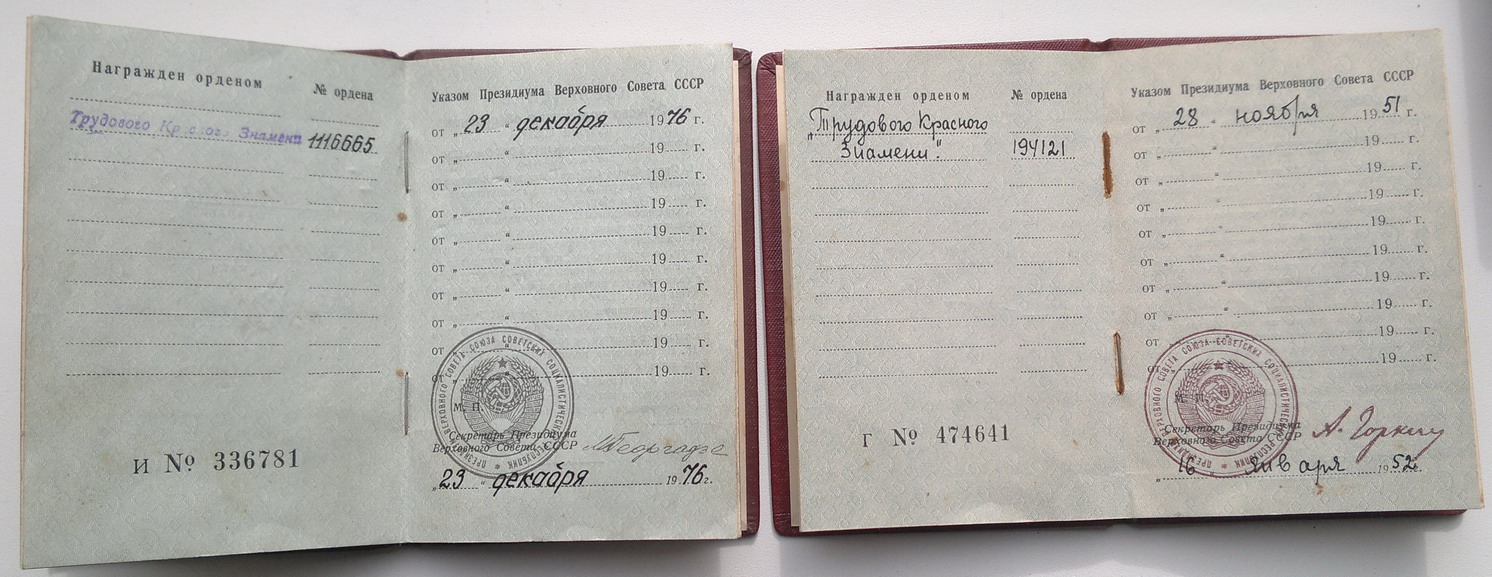 Награжден орденом
№ ордена
Трудового Красного Знамени 1116665
И № 336781
Указом Президиума Верховного Совета СССР
от „ 23 “ декабря 1976 г.
от „ “ 19 г.
от „ “ 19 г.
от „ “ 19 г.
от „ “ 19 г.
от „ “ 19 г.
от „ “ 19 г.
от „ “ 19 г.
от „ “ 19 г.
от „ “ 19 г.
ПРЕЗИДИУМ ВЕРХОВНОГО СОВЕТА СОЮЗА СОВЕТСКИХ СОЦИАЛИСТИЧЕСКИХ РЕСПУБЛИК
М. П.
Секретарь Президиума
Верховного Совета СССР М Георгадзе
„23 “ декабря 1976г.
Награжден орденом
№ ордена
„Трудового Красного
Знамени“. 194121
Г № 474641
Указом Президиума Верховного Совета СССР
от „ 28 “ ноября 1951 г.
от „ “ 19 г.
от „ “ 19 г.
от „ “ 19 г.
от „ “ 19 г.
от „ “ 19 г.
от „ “ 19 г.
от „ “ 19 г.
от „ “ 19 г.
от „ “ 19 г.
ПРЕЗИДИУМ ВЕРХОВНОГО СОВЕТА СОЮЗА СОВЕТСКИХ СОЦИАЛИСТИЧЕСКИХ РЕСПУБЛИК
М. П.
Секретарь Президиума
Верховного Совета СССР А. Горкин
„ 16 “ января 1952г.